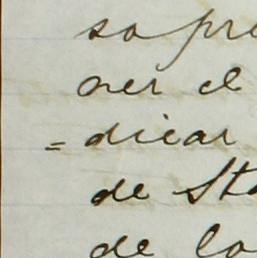 so pre
ner el
= dicar
de Sta
de lo